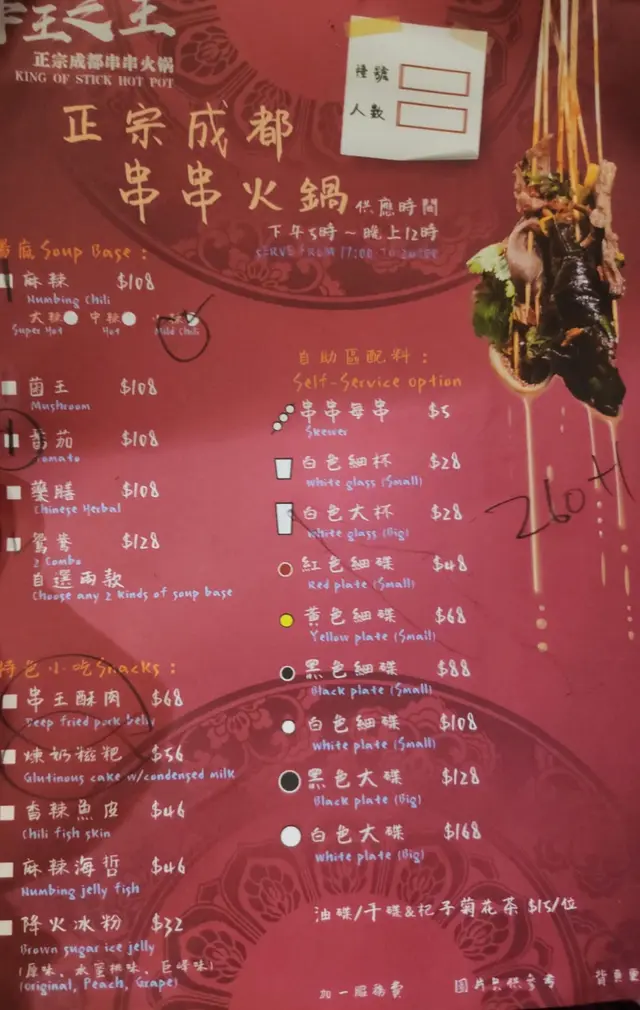 串王之王
正宗成都串串火锅
KING OF STICK HOT POT
檯號
人數
正宗成都
串串火鍋
供應時間
下午5時～晚上12時
底 Soup Base :
麻辣 $108
Numbing Chili
大辣 中辣
Super Hot Hot Mild Chili
菌王 $108
Mushroom
番茄 $108
Tomato
藥膳 $108
Chinese Herbal
鴛鴦 $128
2 Combo
自選兩款
Choose any 2 kinds of soup base
特色小吃 Snacks :
串王酥肉 $68
Deep fried pork belly
煉奶糍粑 $56
Glutinous cake w/condensed milk
香辣魚皮 $46
Chili fish skin
麻辣海哲 $46
Numbing jelly fish
降火冰粉 $32
Brown sugar ice jelly
(原味、水蜜桃味、巨峰味)
(original, Peach, Grape)
自助區配料 :
Self-Service option
串串每串 $5
Skewer
白色細杯 $28
White glass (Small)
白色大杯 $28
White glass (Big)
紅色細碟 $48
Red plate (Small)
黃色細碟 $68
Yellow plate (Small)
黑色細碟 $88
Black plate (Small)
白色細碟 $108
White plate (Small)
黑色大碟 $128
Black plate (Big)
白色大碟 $168
White plate (Big)
油碟/干碟&杞子菊花茶 $15/位
加一服務費
圖片只供參考